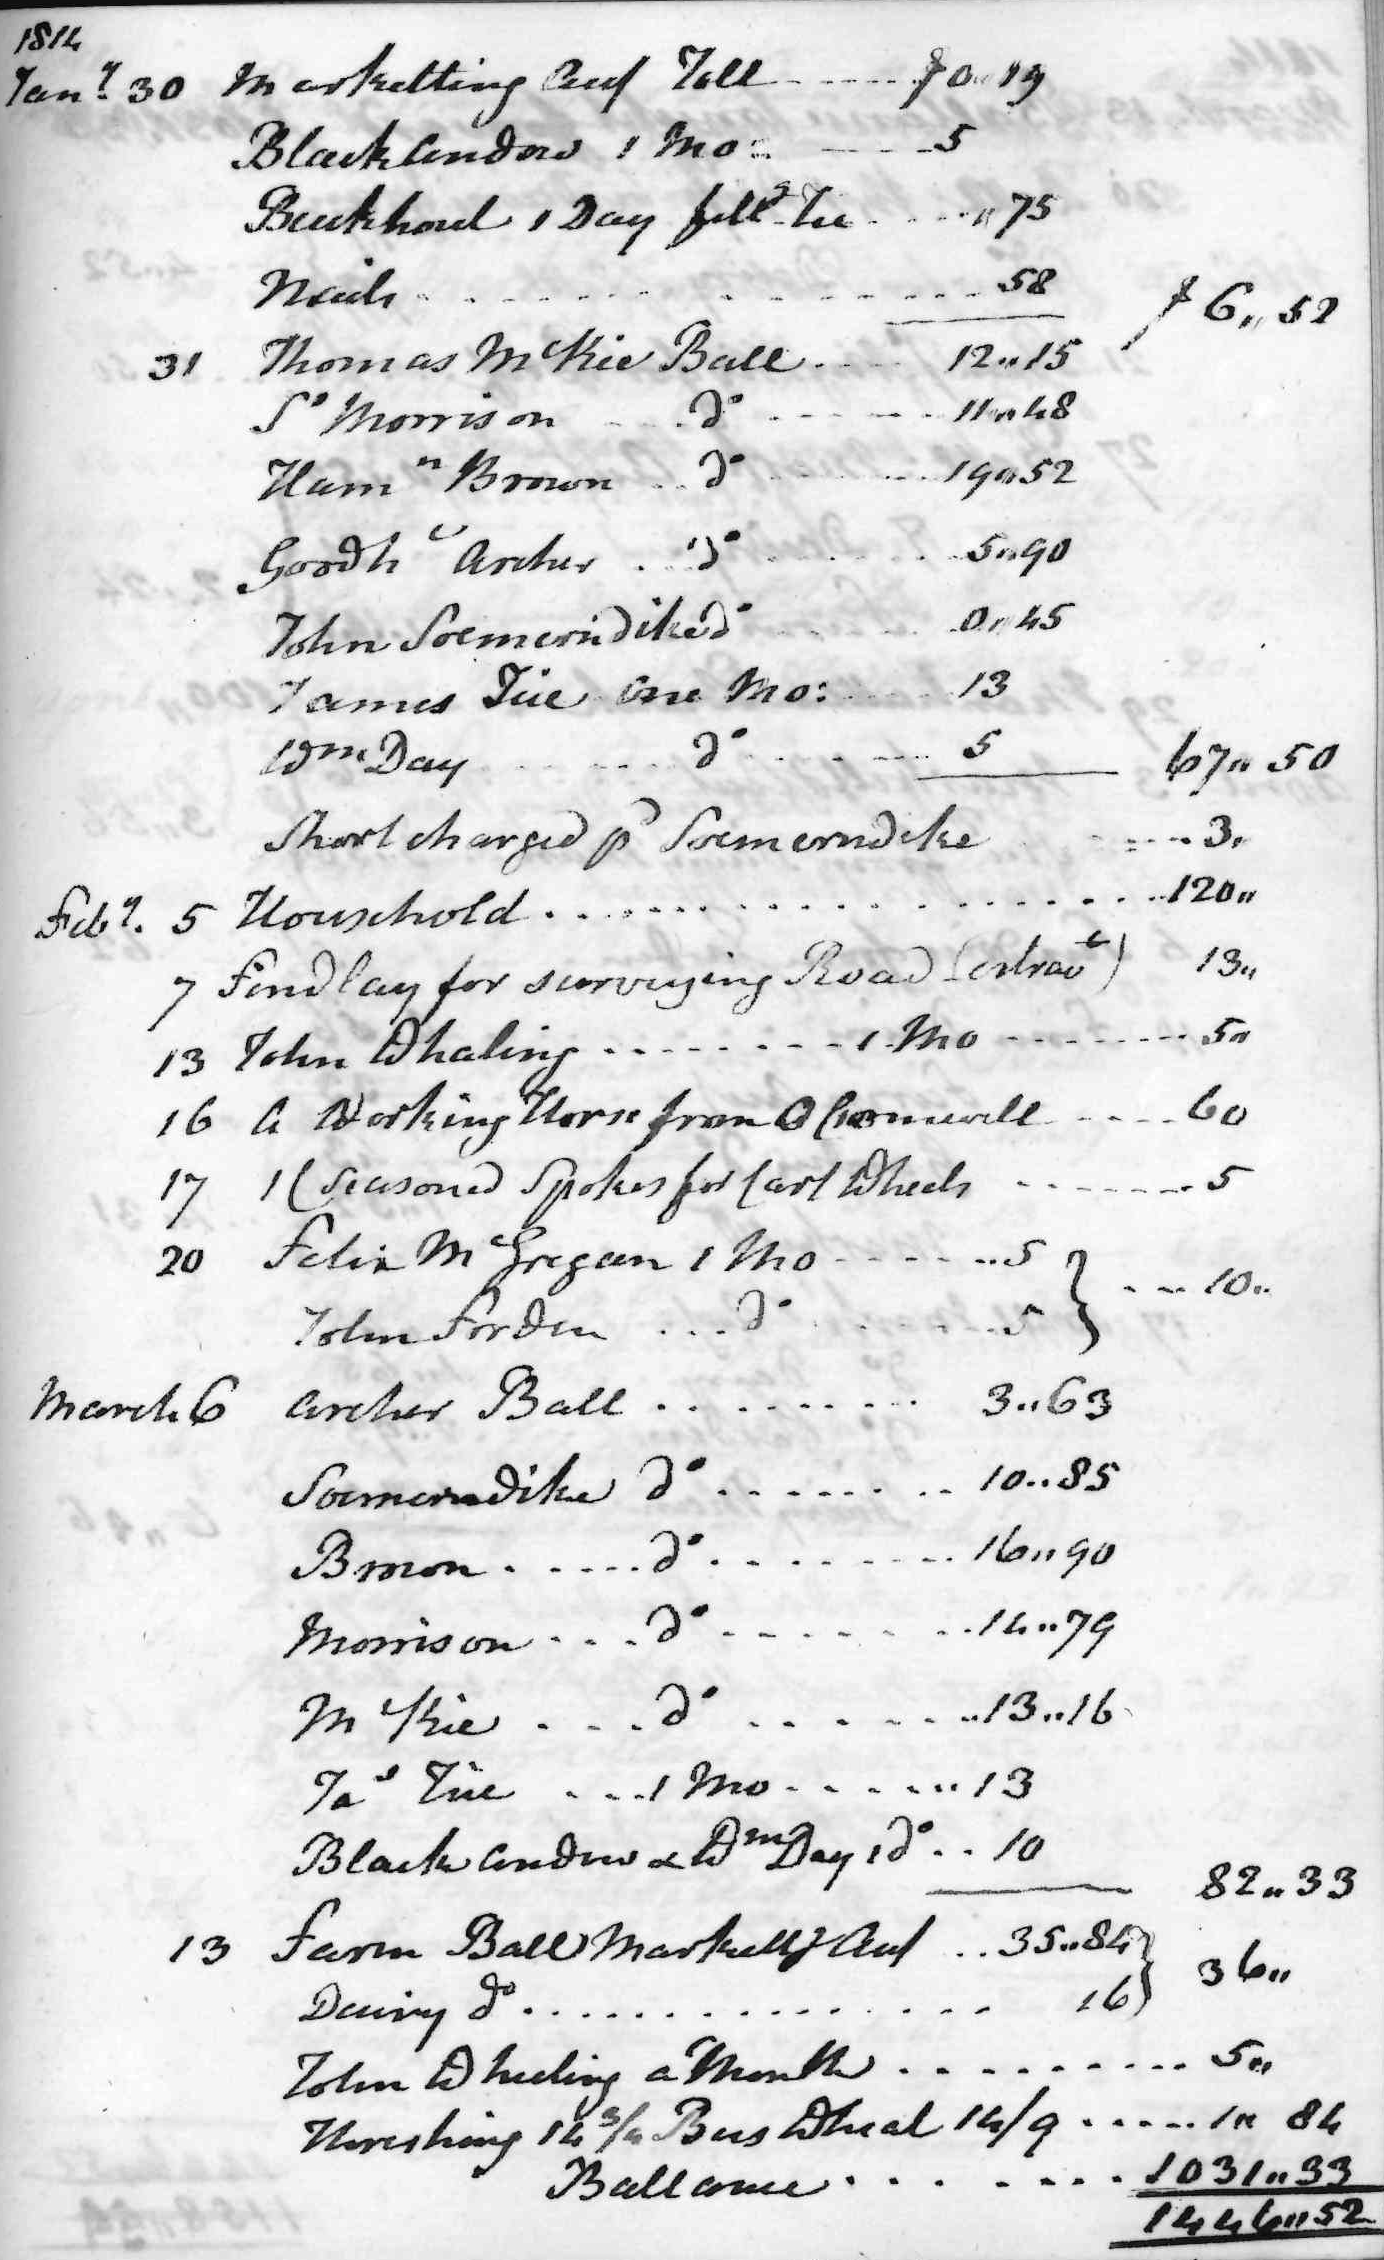 1814
Jan.y 30 Marketting Acct Toll ------ $0..19
Black Andow 1 Mo: ---- 5
Buckhout 1 Day fillg Ice ..... "75
Nails ............ 58 $ 6,, 52
31 Thomas McKie Ball .... 12..15
So Morrison ... do ...... 11..48
Hamn Brown .. do ...... 19..52
Archer .. do ...... 5..90
John Soemerndike do ..... 0..45
James Tüe One Mo: .... 13
Wm Day ..... do ...... 5 67,, 50
Short charged p Soemerndike .... 3,
Feby. 5 Household .................. 120,,
7 Findlay for surveying Road 13,,
13 John Whaling ........ 1 Mo ....... 5,,
16 A Working Horse from O Cromwell .... 60
17 1 C Seasoned Spokes for Cart Wheels ....... 5
20 Felix McGregan 1 Mo ...... 5
John Forden ... do ...... 5 } .... 10..
March 6 Archer Ball ........ 3..63
Soemerndike do ....... 10..85
Brown ..... do ........ 16,,90
Morrison .... do ....... 14..79
McKie ... do ...... 13..16
Jas Tüe ... 1 Mo ...... 13
Black Andew & Wm Day 1 do .. 10
82,, 33
13 Farm Ball Markettg Acct .. 35..84
Dairy do ............... 16 } 36,,
John Wheeling a Month .......... 5,,
Threshing 14 3/4 Bus Wheat 14/9 ..... 1,, 84
Ballance ........ 1031,,33
1446,,52